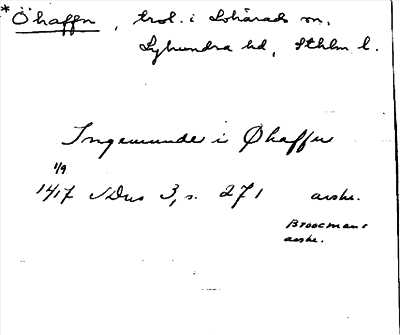 * Öhaffn, trol. i Lohärads sn,
Lyhundra hd, Sthlm l.
Ingemunde i Øhaffn
1/9
1417 SDns 3, s. 271 avskr.
Broocmans
avskr.